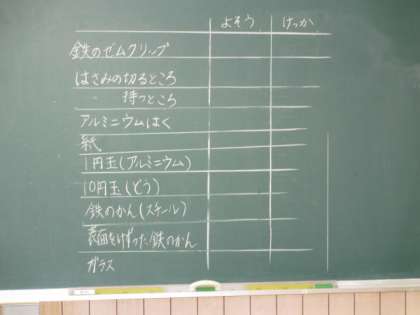 よそう けっか
鉄のゼムクリップ
はさみの切るところ
〃 持つところ
アルミニウムはく
紙
1円玉(アルミニウム)
10円玉(どう)
鉄のかん(スチール)
表面をけずった鉄のかん
ガラス